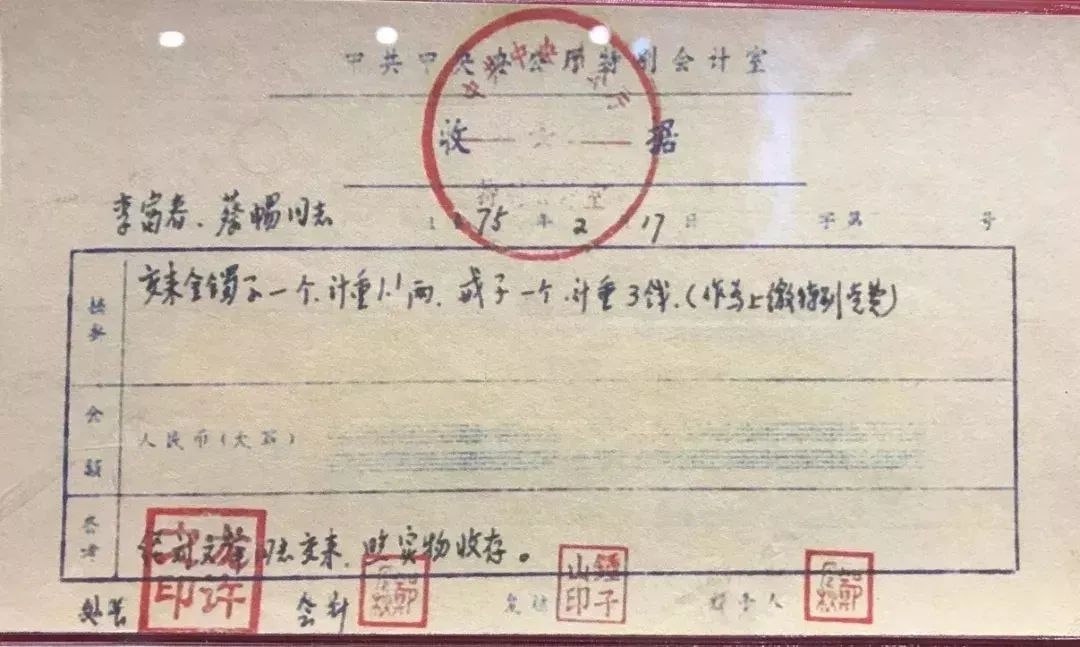 中共中央办公厅特别会计室
收 据
李富春、蔡畅同志 1975年2月17日 字第 号
摘要 交来金镯子一个.计重1.1两、戒子一个.计重3钱.(作为上缴特别党费)
金额 人民币(大写)
备考 同志交来,照实物收存。
处长 会计 复核 经手人
鍾子山印